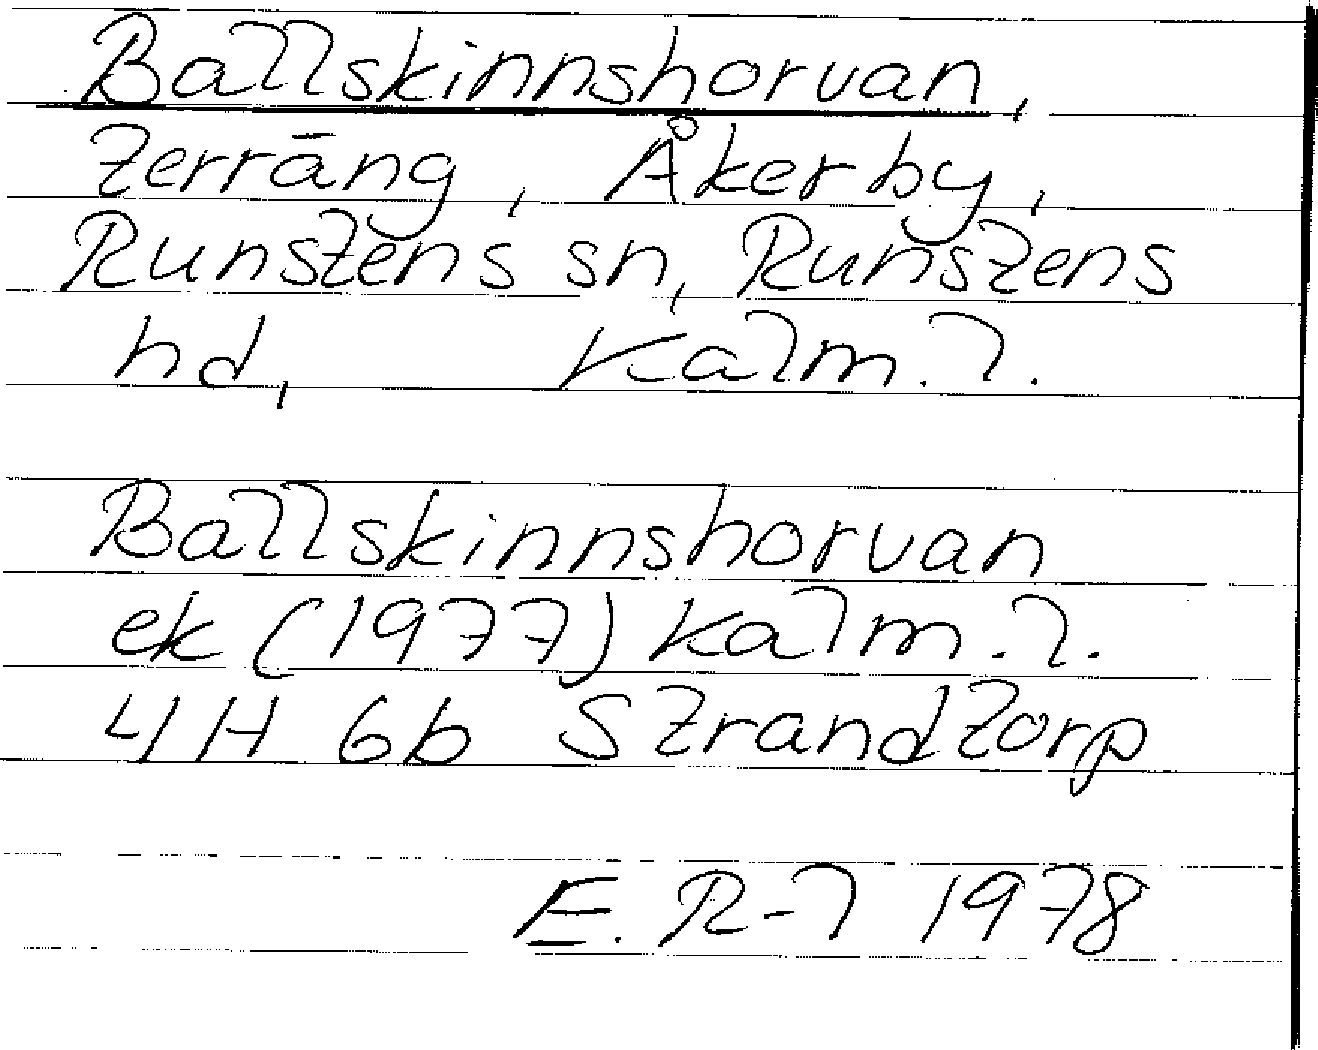 Ballskinnshorvan,
terräng, Åkerby,
Runstens sn, Runstens
hd, Kalm.l.
Ballskinnshorvan
ek (1977) Kalm.l.
4H 6b Strandtorp
E. R-l 1978